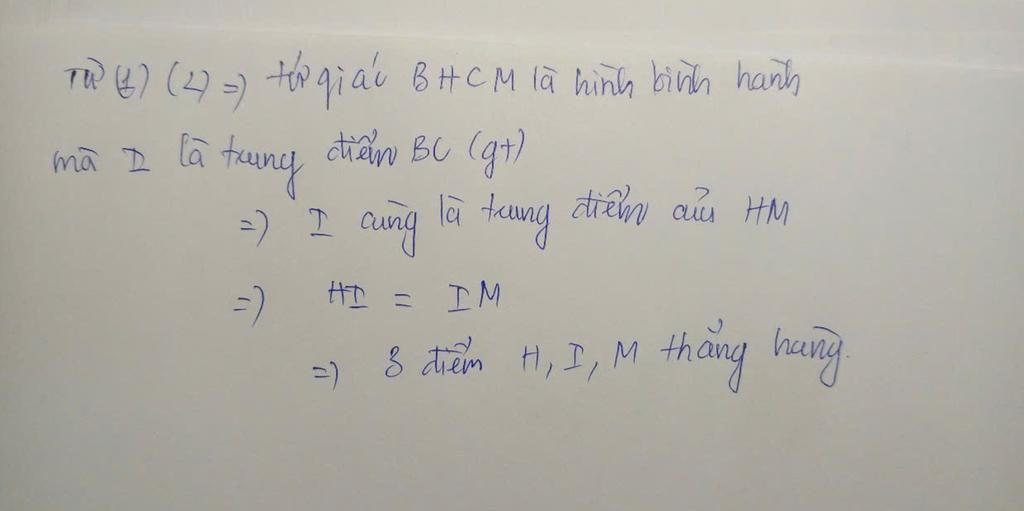 Từ (1) (2) => tứ giác BHCM là hình bình hành
mà I là trung điểm BC (gt)
=> I cũng là trung điểm của HM
=> HI = IM
=> 3 điểm H, I, M thẳng hàng.